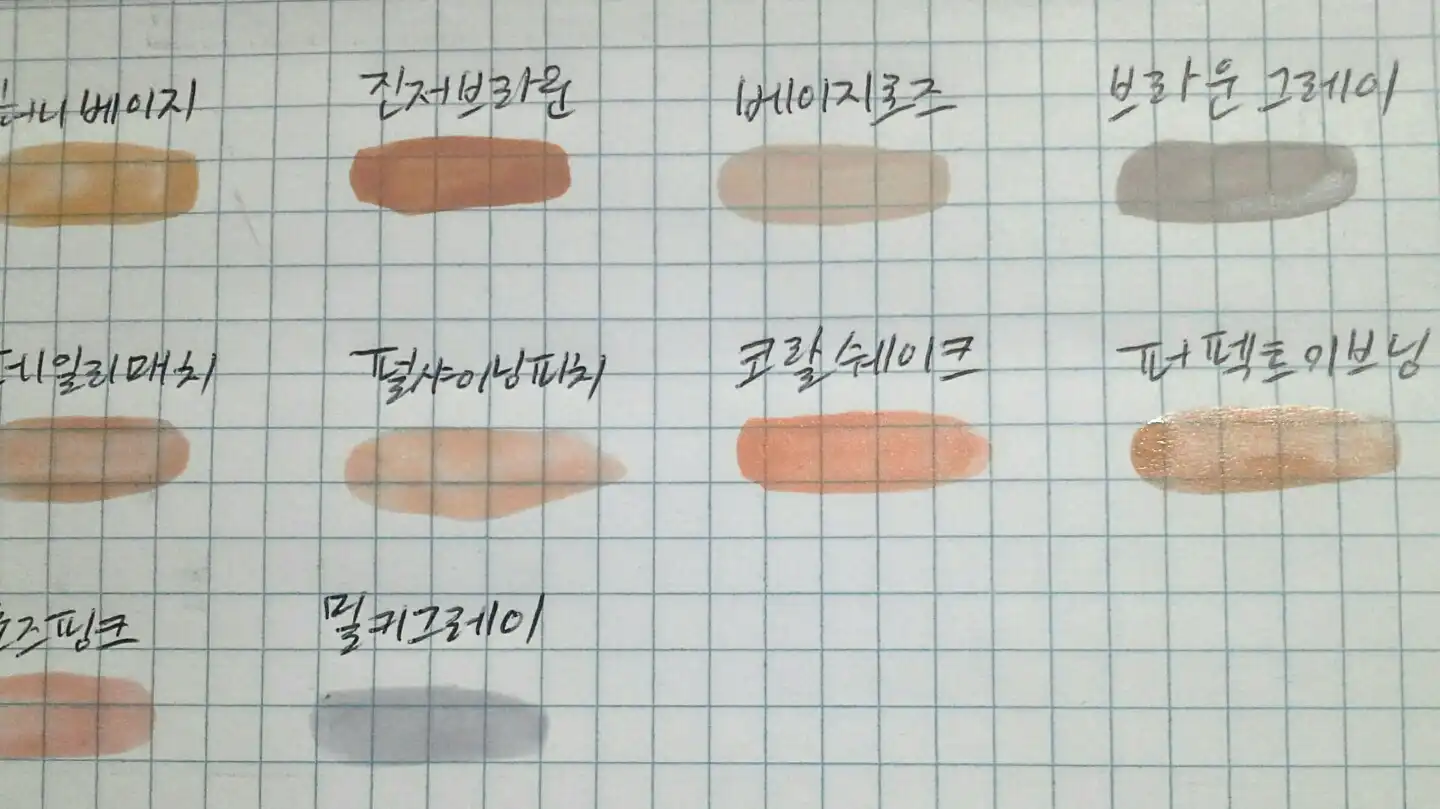 허니베이지 진저브라운 베이지로즈 브라운 그레이
데일리매치 펄샤이닝피치 코랄쉐이크 퍼펙트이브닝
로즈핑크 밀키그레이